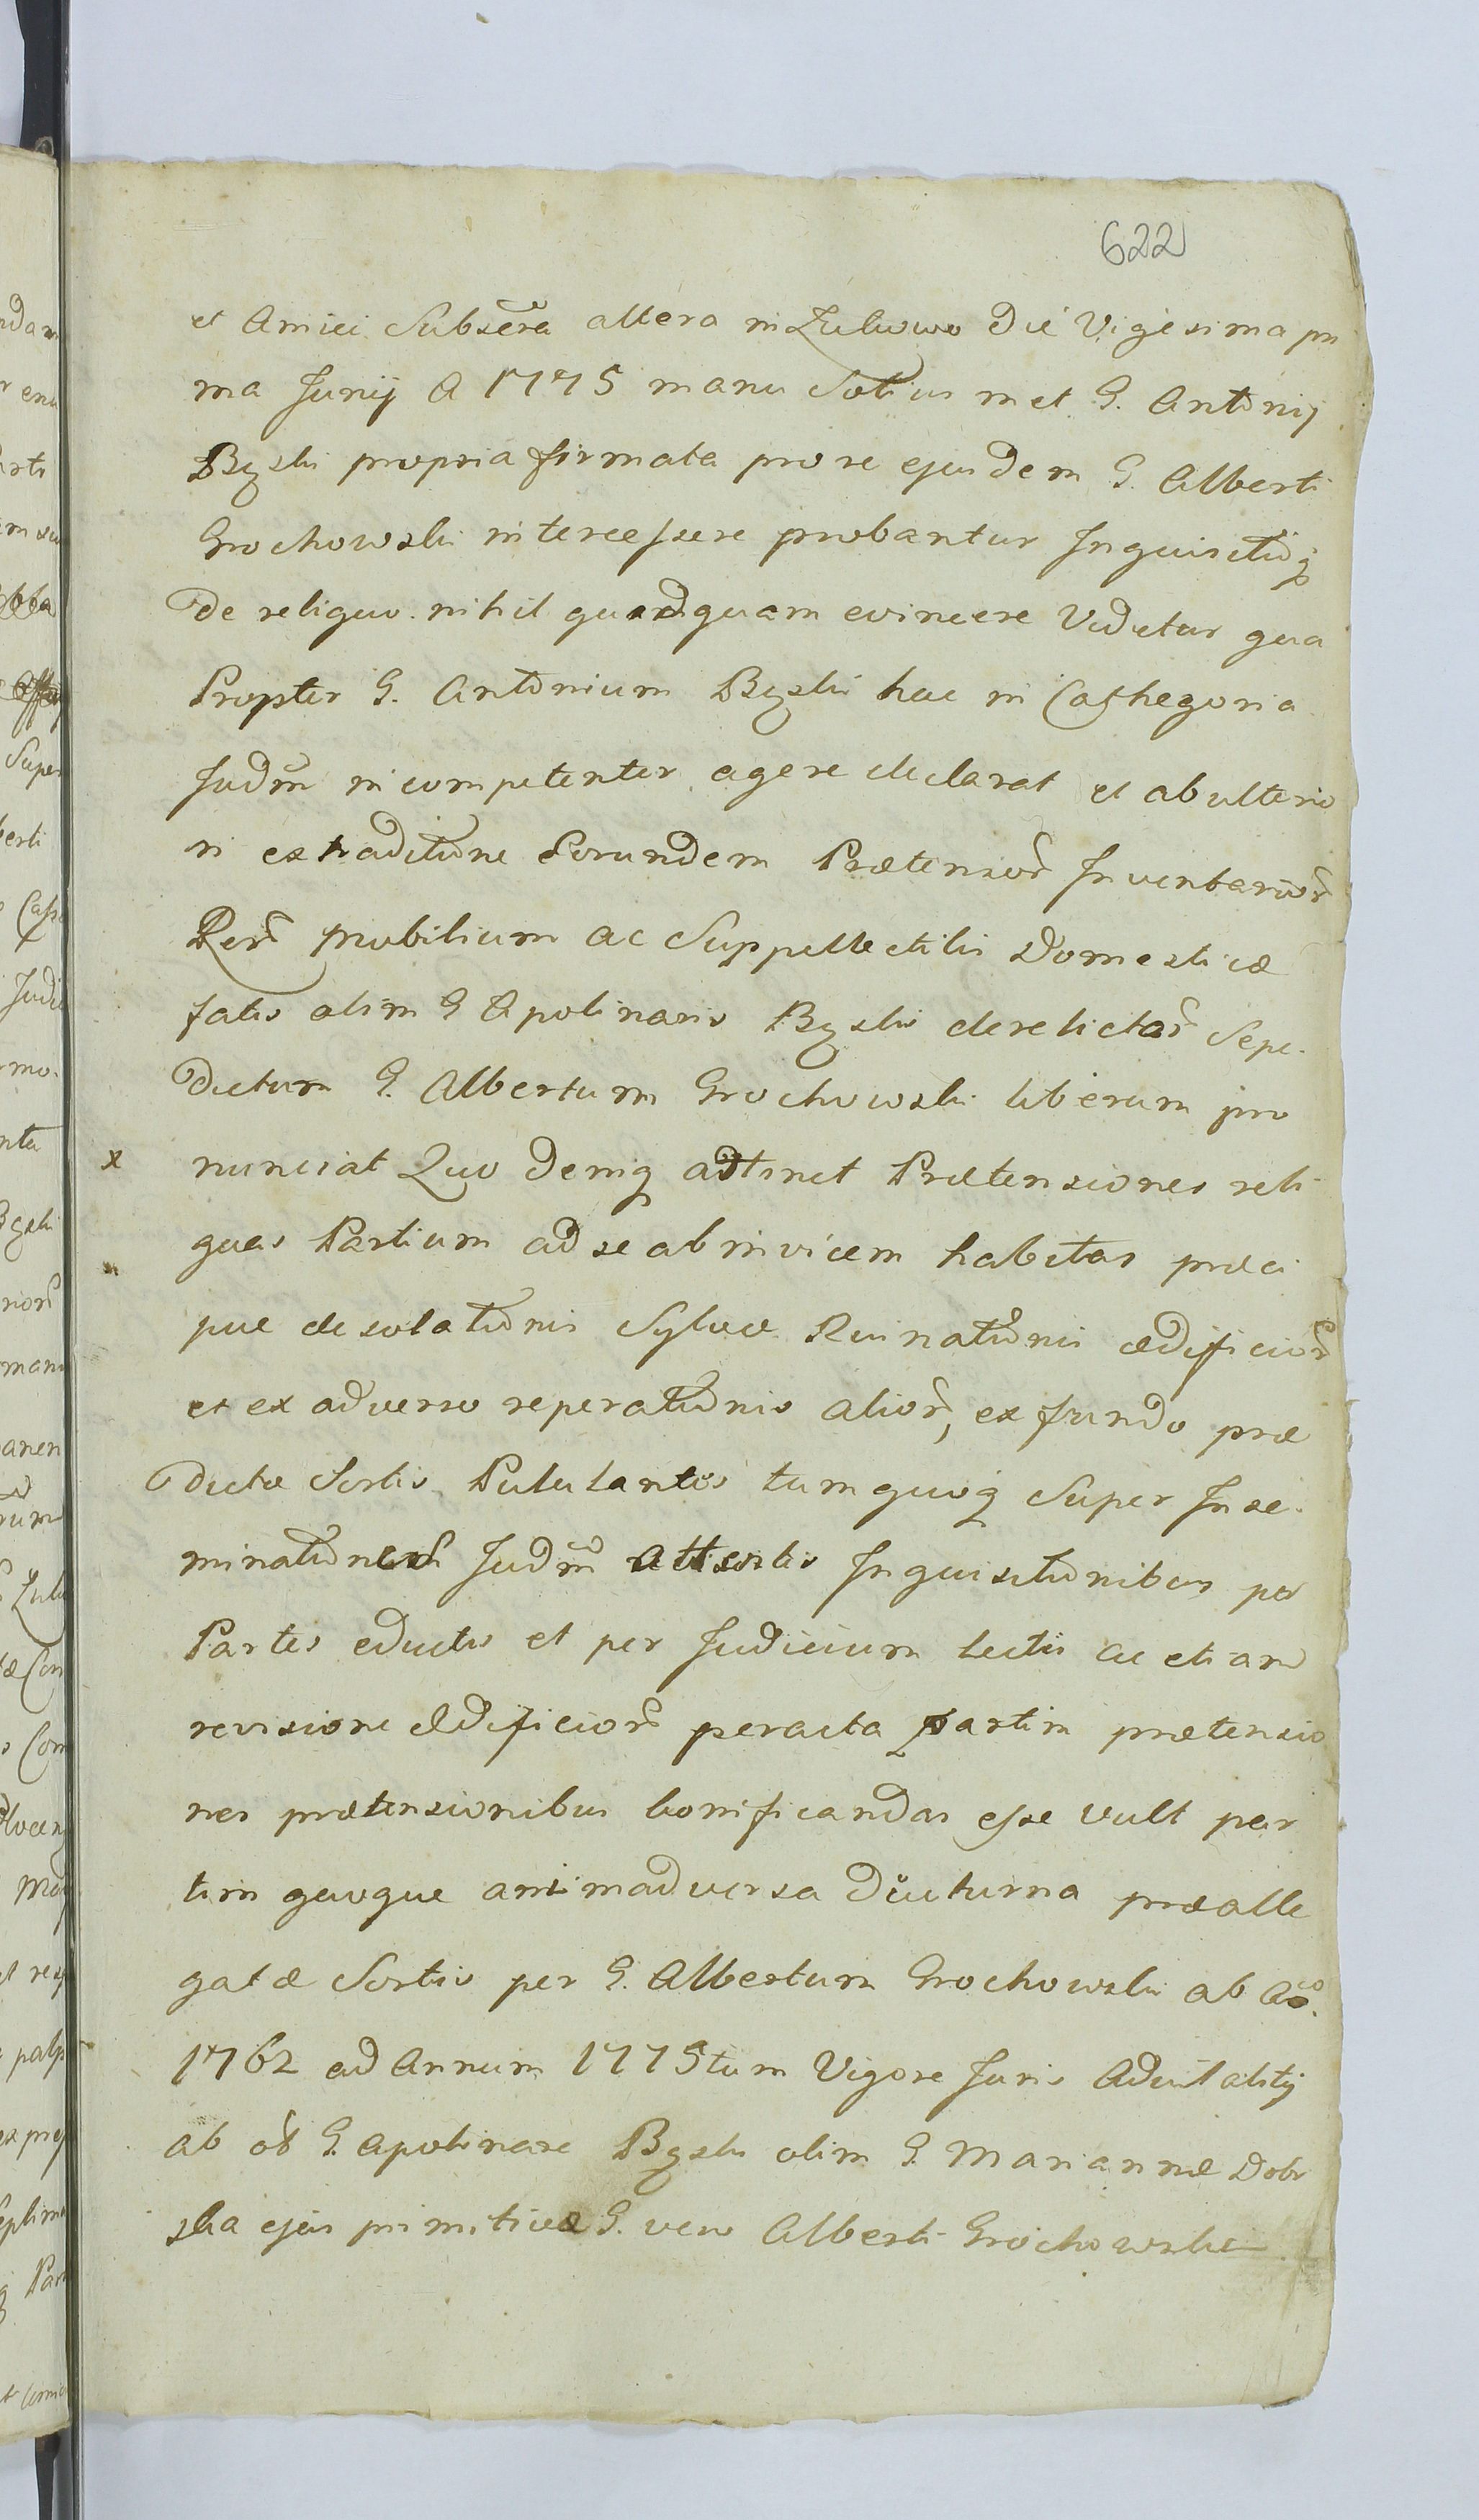 622
et Amici Subscra altera in Żuluwo Die Vigesima pri
ma Junij A 1775 manu Sotius met G. Antonij
Bgski propria firmata pro re ejusdem G. Alberti
Grochowski intercessere probantur Inquisitioq
De reliquo nihil quidquam evincere Videtur qua
Propter G. Antonium Bgski hac in Cathegoria
Judm incompetenter agere declarat et ab ulterio
ri extraditione Eorundem Prætensor Inventarior
Rer mobilium ac Suppellectilis Domesticæ
fatis olim G Apolinaris Bgski derelictar Sepe
Dictum G. Albertum Grochowski liberum pro
x nunciat Quo Deniq adtinet Prætensiones reli
quas Partium ad se ab invicem habitas præci
pue desolationis Sylvæ Ruinationis ædificior
et ex adverso reperationis alior, ex fundo præ
Dictæ Sortis Pululantes tum quoq Super Inse
Judm Inquisitionibus per
Partes eductis et per Judicium lectis ac etiam
revisione Ædificior peracta partim prætensio
nes prætensionibus bonificandas esse vult par
tim quoque animadversa Diuturna prælle
gatæ Sortis per G. Albertum Grochowski ab Ao.
1762 ad Annum 1775tum Vigore Juris Advitalitij
ab ol G. Apolinare Bgski olim G. Mariannæ Dobr
ska ejus primitivæ G. vero Alberti Grochowski